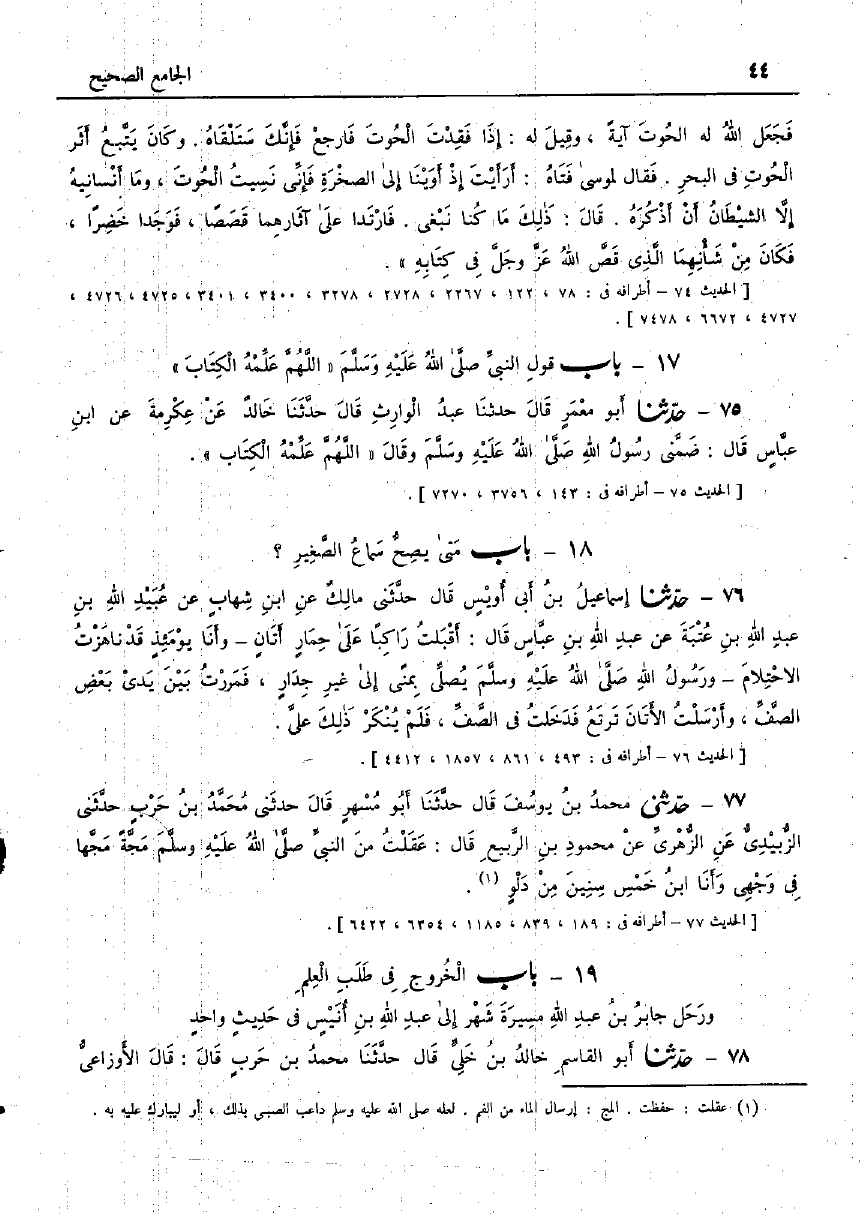 ٤٤
الجامع الصحيح
فَجَعَل اللهُ له الحُوتَ آيةً ، وقِيلَ له : إِذَا فَقِدْتَ الْحُوتَ فَارجعْ فَإِنَّكَ سَتَلْقَاهُ . وكَانَ يَتَّبِعُ أَثَر
الْحُوتِ فى البحرِ . فَقال لموسىٰ فَتَاهُ : أَرَأَيْتَ إِذْ أَوَيْنَا إِلىٰ الصخْرَةِ فَإِنِّى نَسِيتُ الْحُوتَ ، ومَا أَنْسانِيهُ
إِلَّا الشيْطَانُ أَنْ أَذْكُرَهُ . قَالَ : ذٰلِكَ مَا كُنا نَبْغى . فَارْتَدا علىٰ آثارهِما قَصَصًا ، فَوَجَدا خَضِرًا ،
فَكَانَ مِنْ شَأْنِهِمَا الَّذِى قَصَّ اللهُ عَزَّ وجَلَّ فِى كِتابِهِ » .
[ الحديث ٧٤ – أطرافه فى : ٧٨ ، ١٢٢ ، ٢٢٦٧ ، ٢٧٢٨ ، ٣٢٧٨ ، ٣٤٠٠ ، ٣٤٠١ ، ٤٧٢٥ ، ٤٧٢٦ ،
٤٧٢٧ ، ٦٦٧٢ ، ٧٤٧٨ ] .
١٧ – باب قولِ النبىِّ صلَّىٰ اللهُ عَلَيْهِ وَسَلَّمَ « اللَّهُمَّ عَلِّمْهُ الْكِتَابَ »
٧٥ – حدّثنا أَبو مَعْمَرٍ قَالَ حدثنَا عبدُ الْوارِثِ قَالَ حدَّثَنَا خَالدٌ عَنْ عِكْرِمةَ عن ابنِ
عبَّاسٍ قَال : ضَمَّنى رسُولُ اللهِ صَلَّىٰ اللهُ عَلَيْهِ وسَلَّمَ وقَالَ « اللَّهُمَّ عَلِّمْهُ الْكتَاب » .
[ الحديث ٧٥ – أطرافه فى : ١٤٣ ، ٣٧٥٦ ، ٧٢٧٠ ] .
١٨ – باب مَتىٰ يصِحُّ سَماعُ الصَّغِيرِ ؟
٧٦ – حدّثنا إِسماعيلُ بنُ أَبى أُويْسٍ قَال حدَّثَنى مالِكٌ عنِ ابنِ شِهابٍ عن عُبَيْدِ اللهِ بنِ
عبدِ اللهِ بنِ عُتْبَةَ عن عبدِ اللهِ بنِ عبَّاسٍ قَال : أَقْبَلتُ رَاكِبًا عَلَىٰ حِمَارٍ أَتَانٍ – وأَنَا يوْمَئِذٍ قَدْ ناهَزْتُ
الاحْتِلامَ – ورَسُولُ اللهِ صَلَّىٰ اللهُ علَيْهِ وسلَّمَ يُصلِّى بمِنًى إِلىٰ غيرِ جِدَارٍ ، فَمَررْتُ بَيْنَ يَدىْ بَعْضِ
الصَّفِّ ، وأَرْسَلْتُ الأَتَانَ تَرتَعُ فَدَخَلتُ فى الصَّفِّ ، فَلَمْ يُنْكَرْ ذٰلِكَ علىَّ .
[ الحديث ٧٦ – أطرافه فى : ٤٩٣ ، ٨٦١ ، ١٨٥٧ ، ٤٤١٢ ] .
٧٧ – حدّثنى محمدُ بنُ يوسُفَ قَال حدَّثَنَا أَبُو مُسْهِرٍ قَالَ حدثنى مُحَمَّدُ بنُ حَرْبٍ حدَّثَنى
الزُّبيْدِىُّ عَنِ الزُّهْرِىِّ عنْ محمودِ بنِ الرَّبيعِ قَال : عَقَلْتُ منَ النبىِّ صلَّىٰ اللهُ علَيْهِ وسلَّمَ مَجَّةً مَجَّها
فِى وَجْهِى وَأَنَا ابنُ خَمْسِ سِنِينَ مِنْ دَلْوٍ (١) .
[ الحديث ٧٧ – أطرافه فى : ١٨٩ ، ٨٣٩ ، ١١٨٥ ، ٦٣٥٤ ، ٦٤٢٢ ] .
١٩ – باب الْخُروجِ فِى طَلَبِ الْعِلمِ
ورَحَل جابرُ بنُ عبدِ اللهِ مسِيرَةَ شَهْرٍ إِلىٰ عبدِ اللهِ بنِ أُنَيْسٍ فى حَديثٍ واحدٍ
٧٨ – حدّثنا أَبو القاسمِ خالدُ بنُ خَلِىٍّ قَال حدَّثَنَا محمدُ بن حَربٍ قَالَ : قَالَ الأَوزاعىُّ
(١) عقلت : حفظت . المج : إرسال الماء من الفم . لعله صلى الله عليه وسلم داعب الصبى بذلك ، أو ليبارك عليه به .